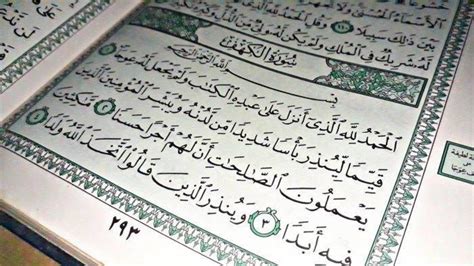 بَيْنَ ذَٰلِكَ سَبِيلًا ١١٠ وَقُلِ
لَّهُۥ شَرِيكٌ فِى ٱلْمُلْكِ وَلَمْ يَكُن لَّهُۥ وَلِىٌّ مِّنَ ٱلذُّلِّ
سُورَةُ الْكَهْفِ
بِسْمِ ٱللَّهِ ٱلرَّحْمَٰنِ ٱلرَّحِيمِ
ٱلْحَمْدُ لِلَّهِ ٱلَّذِىٓ أَنزَلَ عَلَىٰ عَبْدِهِ ٱلْكِتَٰبَ وَلَمْ يَجْعَل لَّهُۥ عِوَجَا ١
قَيِّمًا لِّيُنذِرَ بَأْسًا شَدِيدًا مِّن لَّدُنْهُ وَيُبَشِّرَ ٱلْمُؤْمِنِينَ ٱلَّذِينَ
يَعْمَلُونَ ٱلصَّٰلِحَٰتِ أَنَّ لَهُمْ أَجْرًا حَسَنًا ٢ مَّٰكِثِينَ
فِيهِ أَبَدًا ٣ وَيُنذِرَ ٱلَّذِينَ قَالُوا۟ ٱتَّخَذَ ٱللَّهُ وَلَدًا ٤
٢٩٣